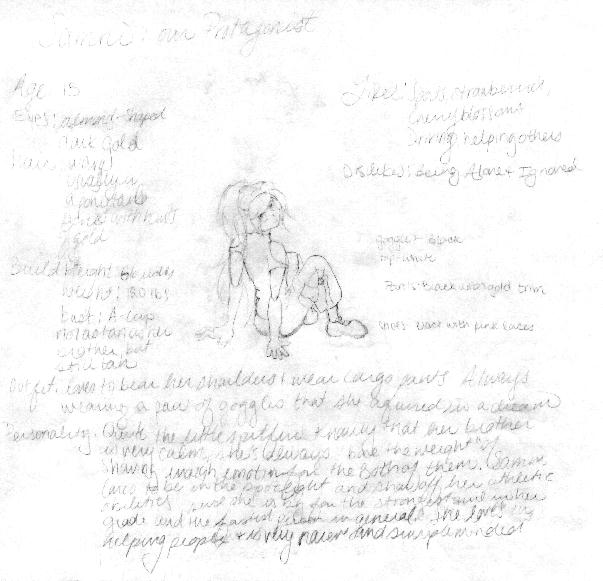 Sanni: our Protagonist
Age 15
Eyes: almond-shaped
dark gold
Hair:
usually in
a ponytail
gold
Build: Height:
weight: 130 lbs
not as tan as her
brother, but
still tan
Likes: Sports, strawberries,
Cherry blossoms
Driving, helping others
Dislikes: Being Alone + Ignored
goggles: Black
top: white
Pants: Black w/ gold trim
shoes: black with pink laces
Outfit: loves to bear her shoulders + wear cargo pants. Always
wearing a pair of goggles that she aquired in a dream
Personality: Quite the little spitfire + having that her brother
is very calm, she's always had the weight of
showing enough emotion for the both of them.
to be in the spotlight and show off her athletic
abilities, she is by far the strongest in her
grade and the fastest person in general. She loves
helping people + is very naive and simpleminded